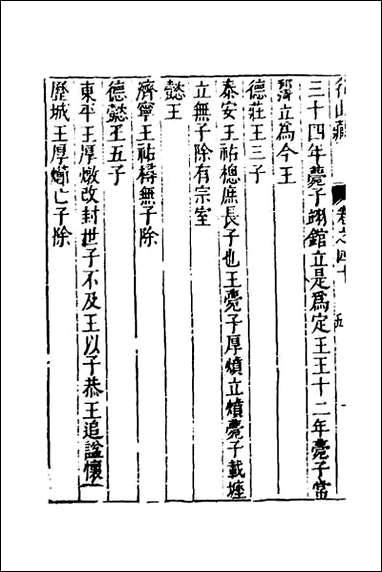 名山藏 卷之四十 五
三十四年薨子翊錧立是爲定王王十二年薨子常
立爲今王
德莊王三子
泰安王祐總庶長子也王薨子厚熿立熿薨子載
立無子除有宗室
懿王
濟寧王祐樳無子除
德懿王五子
東平王厚燉改封世子不及王以子恭王追謚懷
歷城王厚亡子除